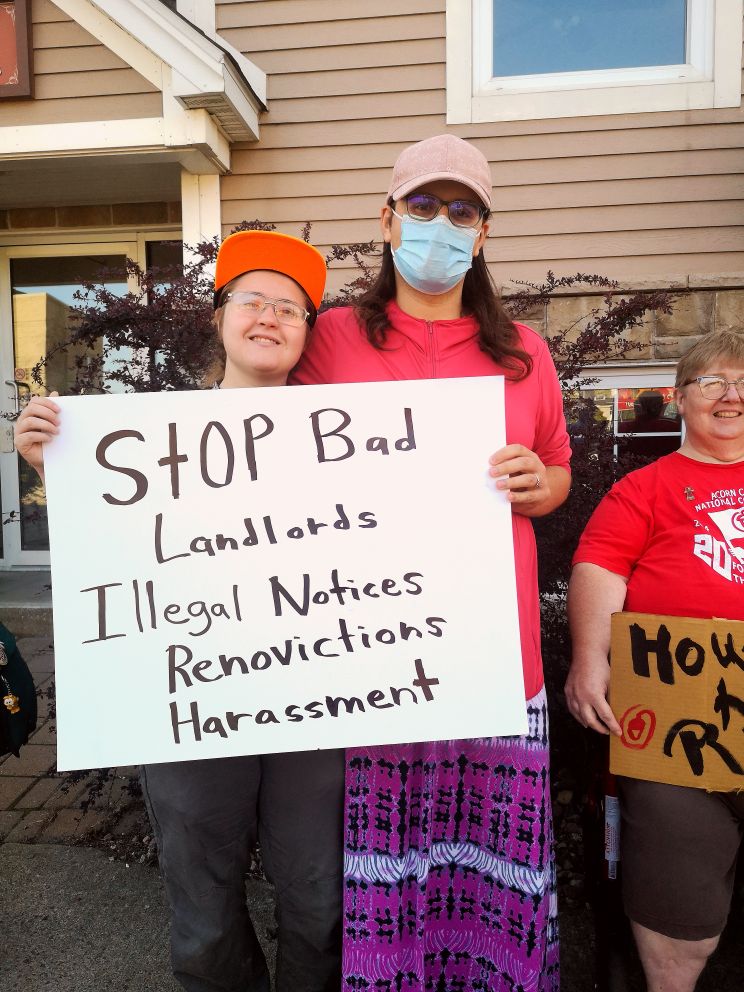 STOP Bad
Landlords
Illegal Notices
Renovictions
Harassment
ACORN
NATIONAL
20
Hou